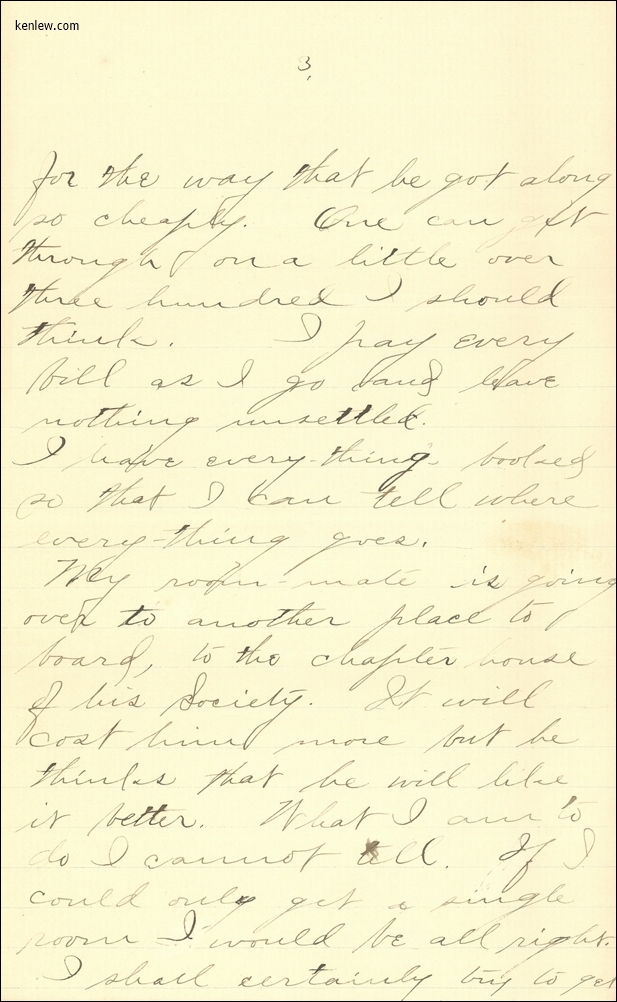 kenlew.com
3,
for the way that he got along
so cheaply. One can get
through on a little over
three hundred I should
think. I pay every
bill as I go and leave
nothing unsettled.
I have every-thing booked
so that I can tell where
every-thing goes.
My room-mate is going
over to another place to
board, to the chapter house
of his Society. It will
cost him more but he
thinks that he will like
it better. What I am to
do I cannot tell. If I
could only get a single
room I would be all right.
I shall certainly try to get